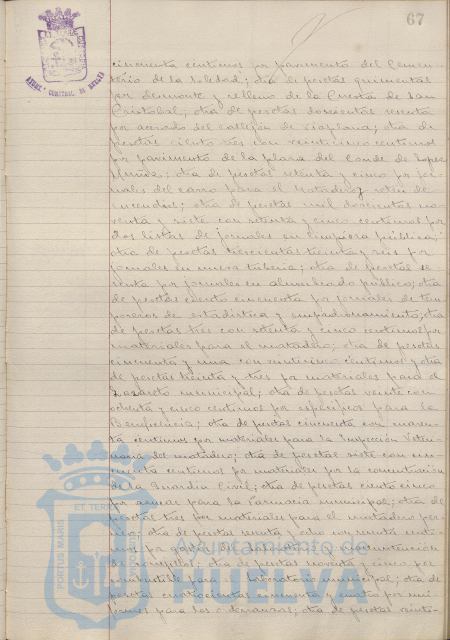 67
cincuenta céntimos por pavimento del Cemen-
terio de la Soledad; otra de pesetas quinientas
por desmonte y relleno de la Cuesta de San
Cristobal; otra de pesetas doscientas sesenta
por acerado del callejón de Viaplana; otra de
pesetas ciento tres con veinticinco centimos
por pavimento de la plaza del Conde de Lopez
Muñoz; otra de pesetas setenta y cinco por jor-
nales del carro para el Matadero y retén de
incendios; otra de pesetas mil doscientas no-
venta y siete con setenta y cinco centimos por
dos listas de jornales en limpieza pública;
otra de pesetas trescientas treinta y seis por
jornales en nueva tuberia; otra de pesetas se-
senta por jornales en alumbrado público; otra
de pesetas ciento cincuenta por jornales de tem-
poreros de estadistica y empadronamiento; otra
de pesetas tres con setenta y cinco centimos por
materiales para el matadero; otra de pesetas
cincuenta y una con veinticinco centimos y otra
de pesetas treinta y tres por materiales para el
Lazareto municipal; otra de pesetas veinte con
ochenta y cinco centimos por especificos para la
Beneficencia; otra de pesetas cincuenta con cuaren-
ta centimos por materiales para la Inspección Veteri-
naria del matadero; otra de pesetas siete con cin-
cuenta centimos por materiales por la concentracion
de la Guardia Civil; otra de pesetas ciento cinco
por azucar para la Farmacia municipal; otra de
pesetas tres por materiales para el matadero
otra de pesetas setenta y ocho con
por gastos de
otra de pesetas noventa y cinco por
combustible para el laboratorio municipal; otra de
pesetas cuatrocientas cincuenta y cuatro por uni-
formes para los ordenanzas; otra de pesetas veinti-
PORTUS MARIS
ET TERRAE
Ayuntamiento de
HUELVA